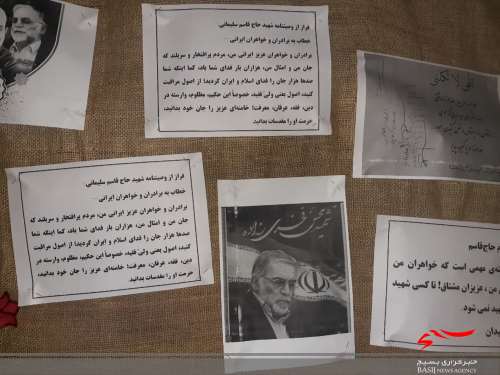 فراز از وصیتنامه شهید حاج قاسم سلیمانی
خطاب به برادران و خواهران ایرانی
برادران و خواهران عزیز ایرانی من، مردم پرافتخار و سربلند که
جان من و امثال من، هزاران بار فدای شما باد، کما اینکه شما
صدها هزار جان را فدای اسلام و ایران کردید؛ از اصول مراقبت
کنید، اصول یعنی ولی فقیه، خصوصاً این حکیم، مظلوم، وارسته در
دین، فقه، عرفان، معرفت؛ خامنه‌ای عزیز را جان خود بدانید،
حرمت او را مقدسات بدانید.
فراز از وصیتنامه شهید حاج قاسم سلیمانی
خطاب به برادران و خواهران ایرانی
برادران و خواهران عزیز ایرانی من، مردم پرافتخار و سربلند که
جان من و امثال من، هزاران بار فدای شما باد، کما اینکه شما
صدها هزار جان را فدای اسلام و ایران کردید؛ از اصول مراقبت
کنید، اصول یعنی ولی فقیه، خصوصاً این حکیم، مظلوم، وارسته در
دین، فقه، عرفان، معرفت؛ خامنه‌ای عزیز را جان خود بدانید،
حرمت او را مقدسات بدانید.
شهید محسن فخری زاده
حاج‌قاسم
ی مهمی است که خواهران من
من، عزیزان مشتاق! تا کسی شهید
ید نمی شود.
یدان
بسیج
خبرگزاری بسیج
BASIJ NEWS AGENCY